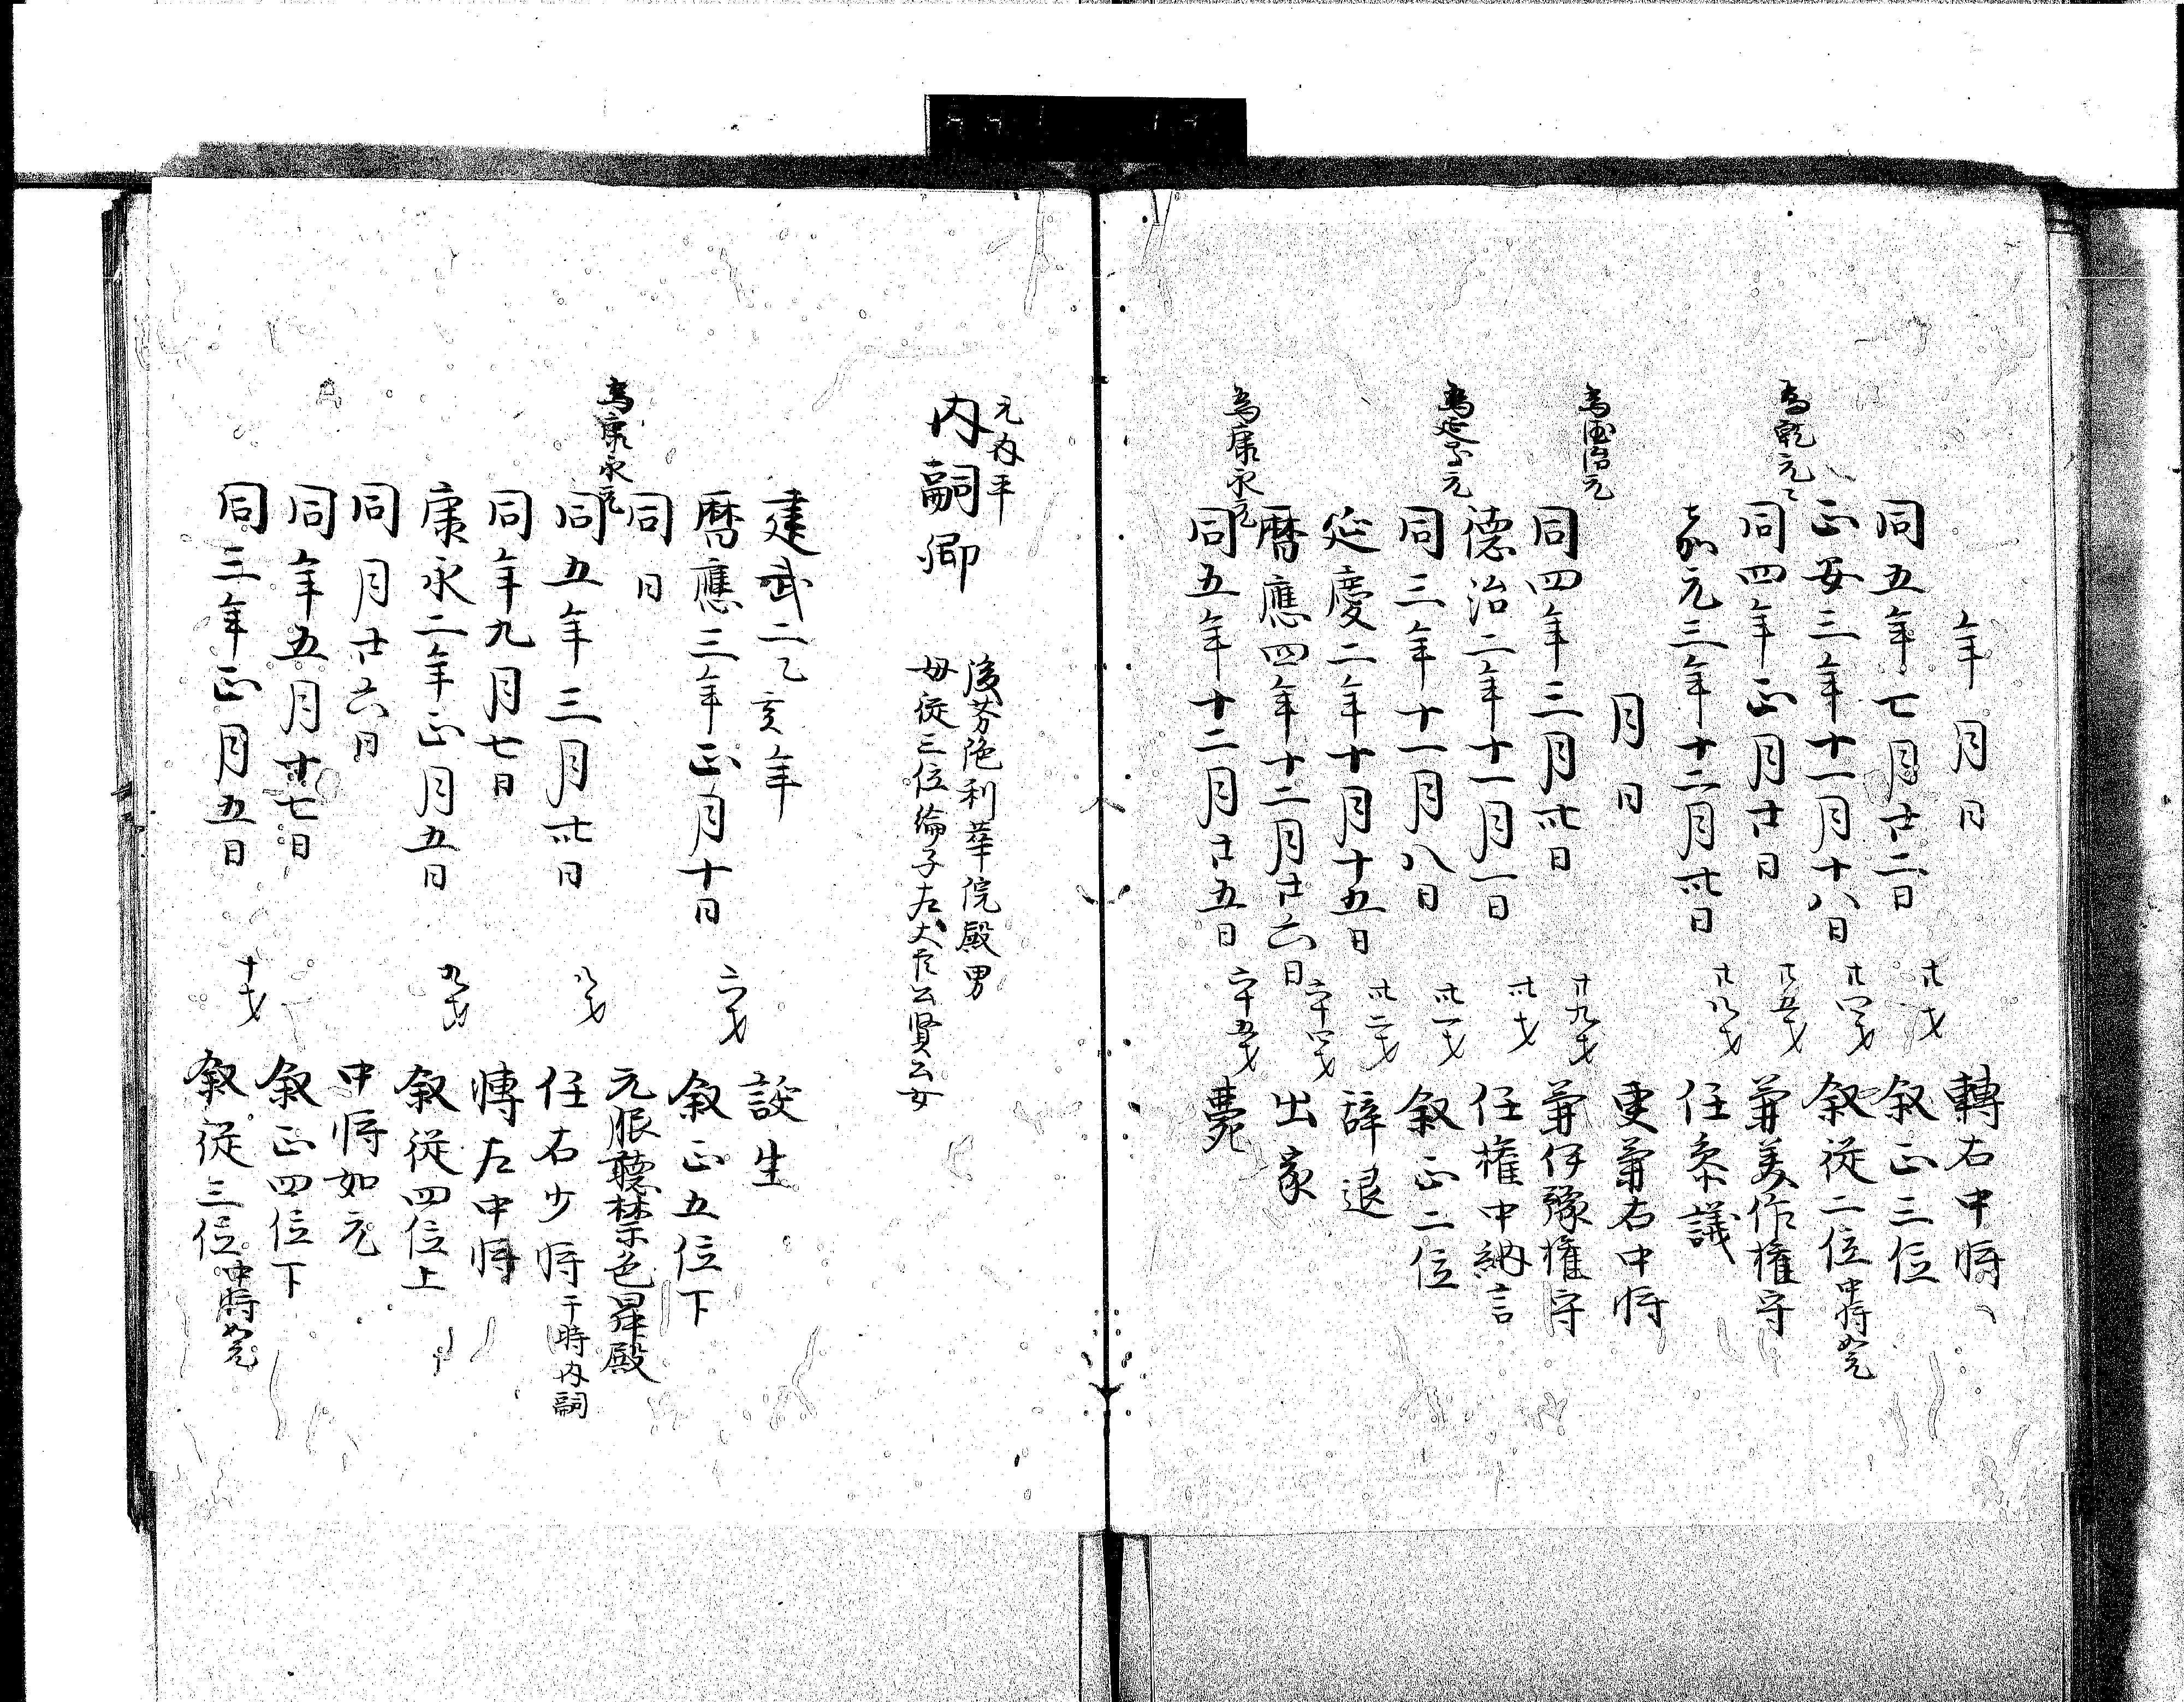 年月日 轉右中将
同五年七月廿二日 廿才 叙正三位
正安三年十一月十八日 廿四才 叙従二位中将如元
為乾元々
同四年正月廿日 廿五才 兼美作権守
嘉元三年十二月卅日 廿八才 任参議
月日 更兼右中将
為徳治元
同四年三月卅日 廿九才 兼伊豫権守
德治二年十一月一日 卅才 任権中納言
為延慶元
同三年十一月八日 卅一才 叙正二位
延慶二年十月十五日 卅二才 辞退
暦應四年十二月廿六日 六十四才 出家
為康永元
同五年十二月廿五日 六十五才 薨
元内平
内嗣卿
後芬陀利華院殿男
母従三位綸子左大臣公賢公女
建武二乙亥年 誕生
暦應三年正月十日 六才 叙正五位下
同日 元服聴禁色昇殿
為康永元
同五年三月卅日 八才 任右少将于時内嗣
同年九月七日 轉左中将
康永二年正月五日 九才 叙従四位上
同月廿六日 中将如元
同年五月廿七日 叙正四位下
同三年正月五日 十才 叙従三位中将如元